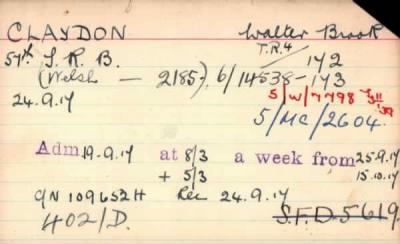 CLAYDON Walter Brook
T.R.4
57th T.R.B. 142
(Welsh — 2185). 6/14538 — 143
24.9.17 S/W/7798
5/MC/2604.
Adm 19.9.17 at 8/3 a week from 25.9.17
+ 5/3 15.10.17
QN 109652H Rec 24.9.17
402/D. S.F.D. 5619